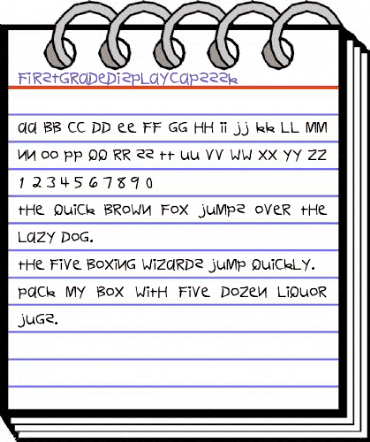 FirstGradeDisplayCapsSSK
aa BB CC DD ee FF GG HH ii jj kk LL MM
NN oo pp QQ RR ss tt uu VV WW XX YY ZZ
1 2 3 4 5 6 7 8 9 0
tHe QuiCk BROWN FOX juMps oVeR tHe
LaZY DoG.
tHe FiVe BoXiNG WiZaRDs juMp QuiCkLY.
paCk MY BoX WitH FiVe DoZeN LiQuoR
juGs.